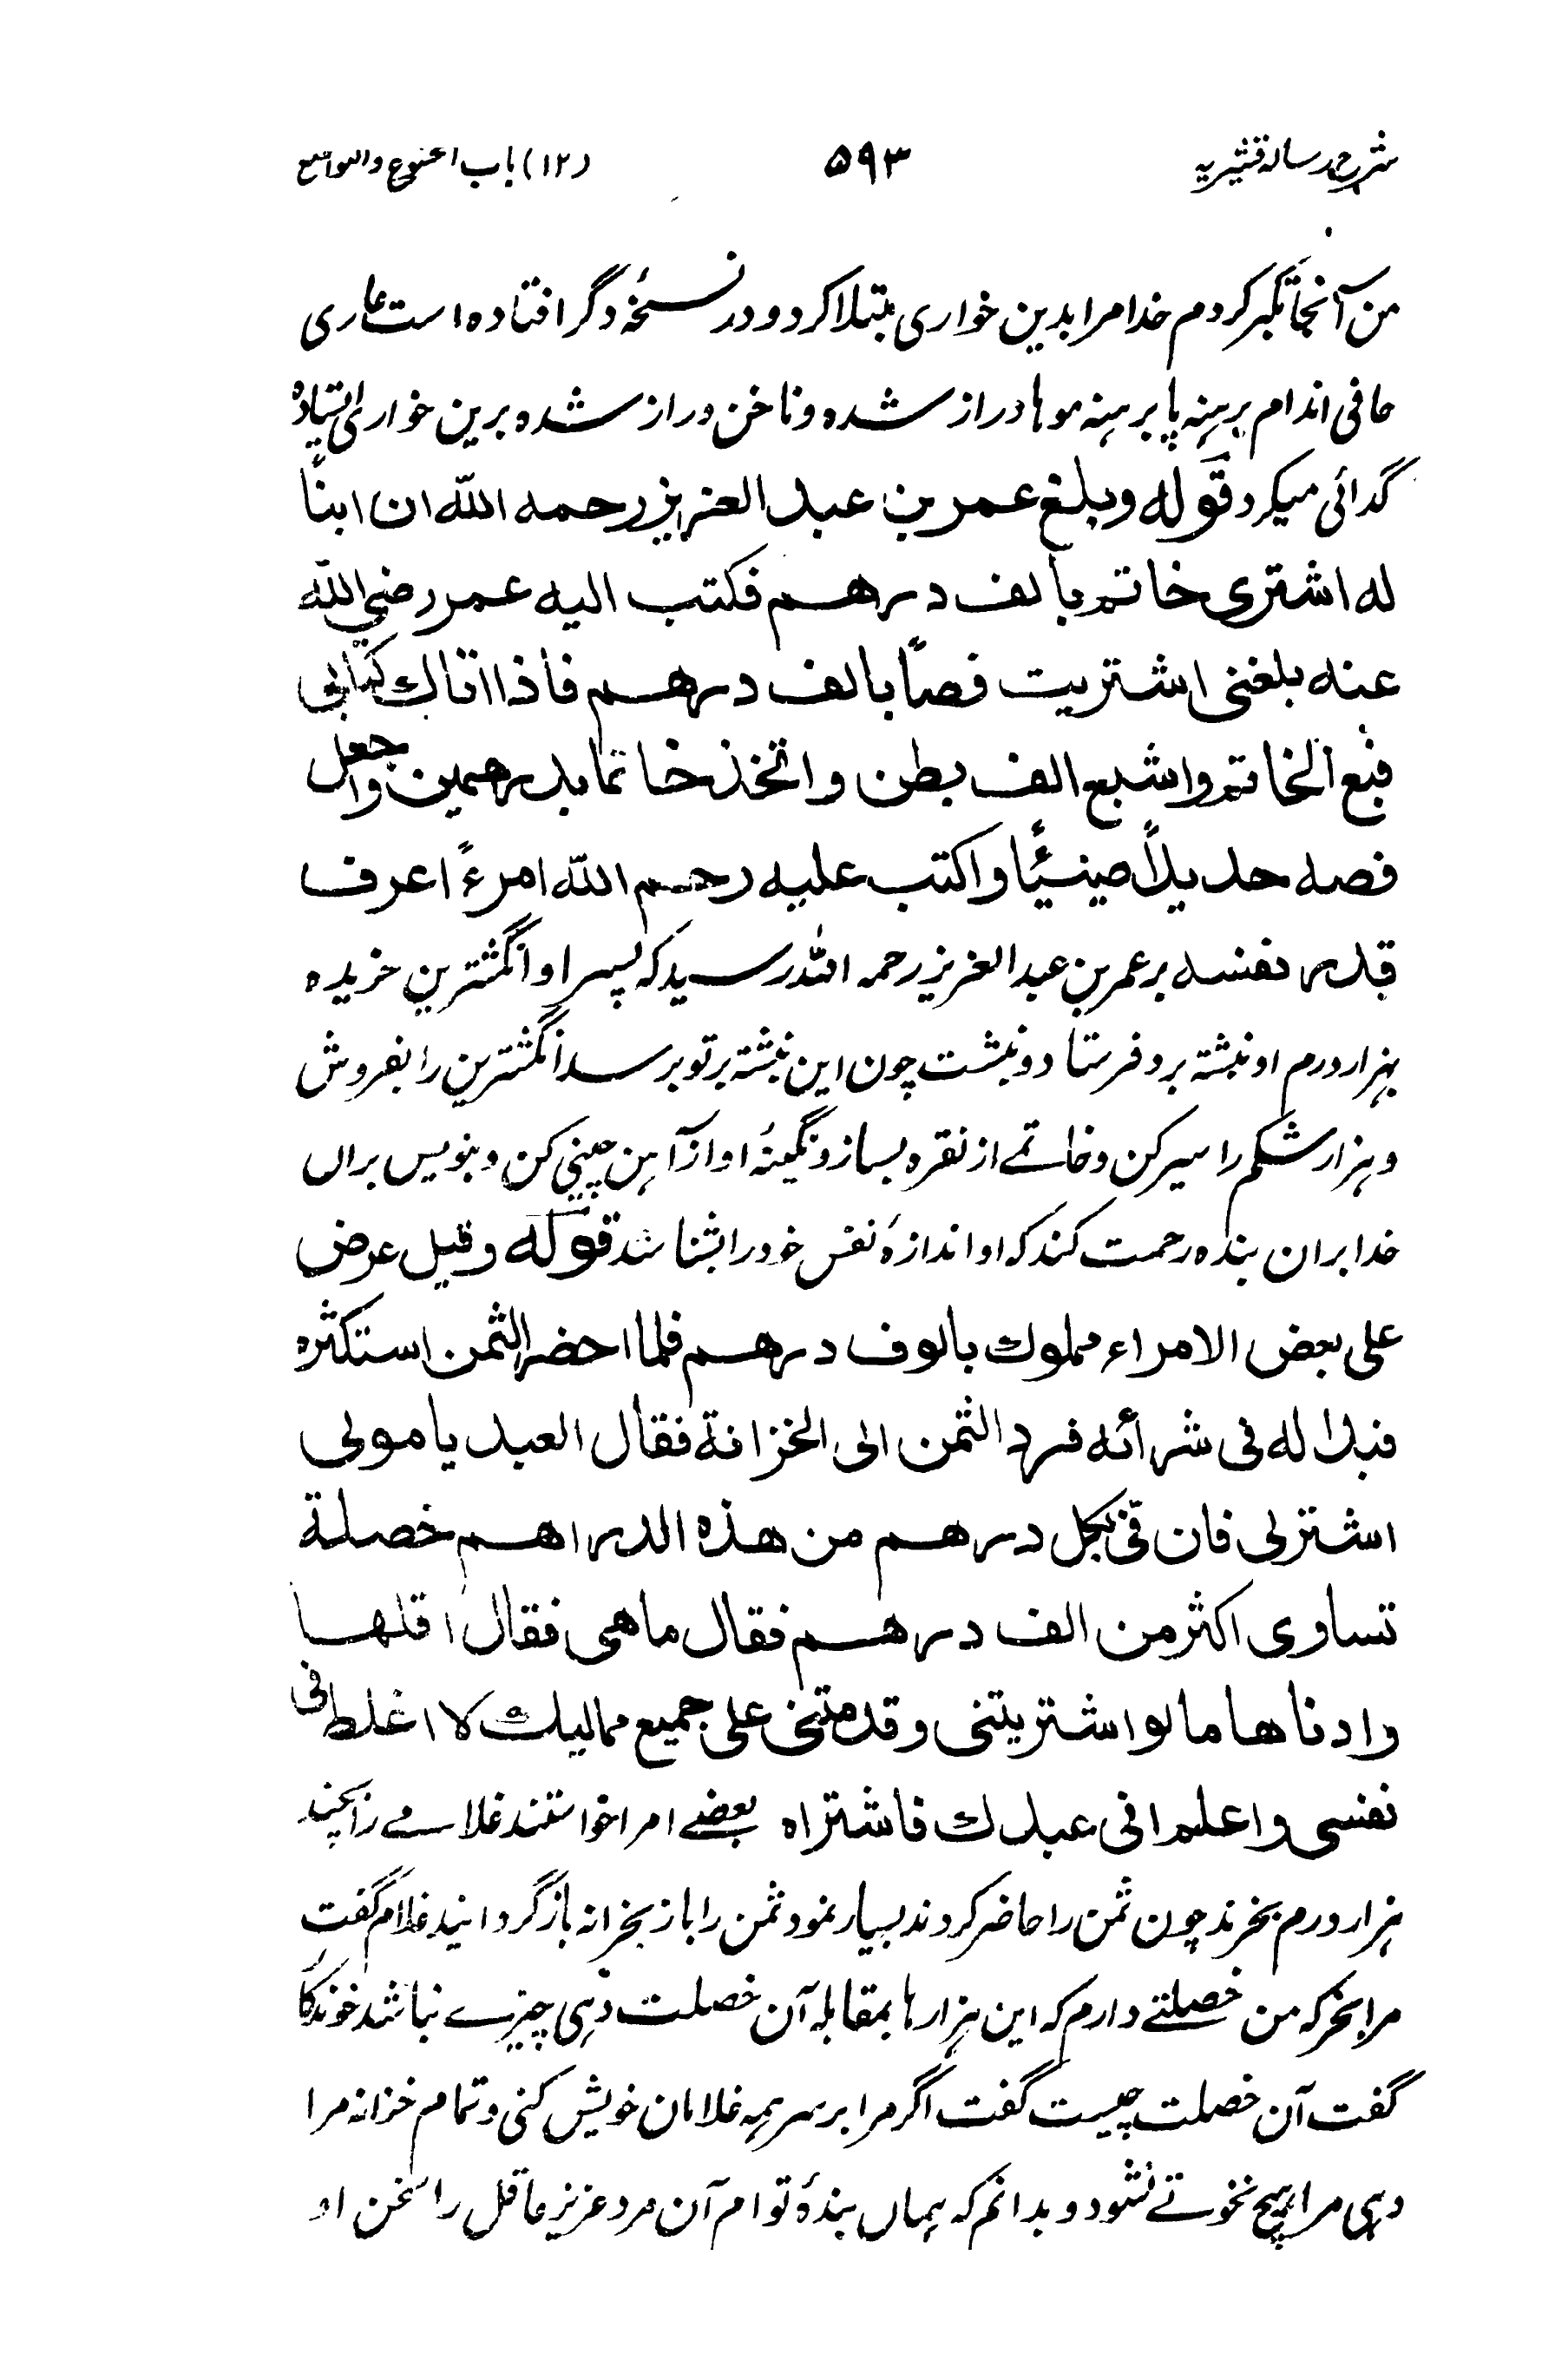 شرح رسالہ قشیریہ ۵۹۳ (۱۲) باب الخشوع والتواضع
من آنجا تکبر کردم خدا مرا بدین خواری مبتلا کرد و در نسخۂ دگر افتاده است عاری
حافی اندام برہنہ پا برہنہ موها دراز شده و ناخن دراز شده برین خواری ایستادہ
گدائی میکرد قوله وبلغ عمر بن عبد العزیز رحمه اللّٰه ان ابنًا
له اشتری خاتم بالف درهم فکتب الیه عمر رضی اللّٰه
عنه بلغنی اشتریت فصًا بالف درهم فاذا اتاك کتابی
فبع الخاتم واشبع الف بطن واتخذ خاتما بدرهمین واجعل
فصه حدیدًا صینیًا واکتب علیه رحم اللّٰه امرءً اعرف
قدر نفسه بر عمر بن عبد العزیز رحمہ اللّٰہ رسید کہ پسر او انگشترین خریدہ
بہزار درم او نبشتہ برو فرستاد و نبشت چون این نبشتہ بر تو برسد انگشترین را بفروش
و ہزار شکم را سیر کن و خاتمے از نقرہ بساز و نگینۂ او از آہن چینی کن و بنویس براں
خدا بران بندہ رحمت کند کہ او اندازۂ نفس خود را بشناسد قوله وقیل عرض
علی بعض الامراء مملوك بالوف درهم فلما احضر الثمن استکثره
فبدا له فی شرائه فرد الثمن الی الخزانة فقال العبد یا مولی
اشترلی فان فی بکل درهم من هذه الدراهم خصلة
تساوی اکثر من الف درهم فقال ماهی فقال اقلها
وادناها مالو اشتریتنی وقدمتنی علی جمیع ممالیك لا اغلط فی
نفسی واعلم انی عبدك فاشتراه بعضے امرا خواستند غلامے را بچند
ہزار درم بخرند چون ثمن را حاضر کردند بسیار نمود ثمن را باز بخزانہ باز گردانید غلام گفت
مرا بخر کہ من خصلتے دارم کہ این ہزارہا بمقابلہ آن خصلت دہی چیزے نباشد خوندکا
گفت آن خصلت چیست گفت اگر مرا بر سر ہمہ غلامان خویش کنی و تمام خزانہ مرا
دہی مرا ہیچ نخوتے نشود و بدانم کہ ہماں بندۂ توام آن مرد عزیز عاقل را سخن او